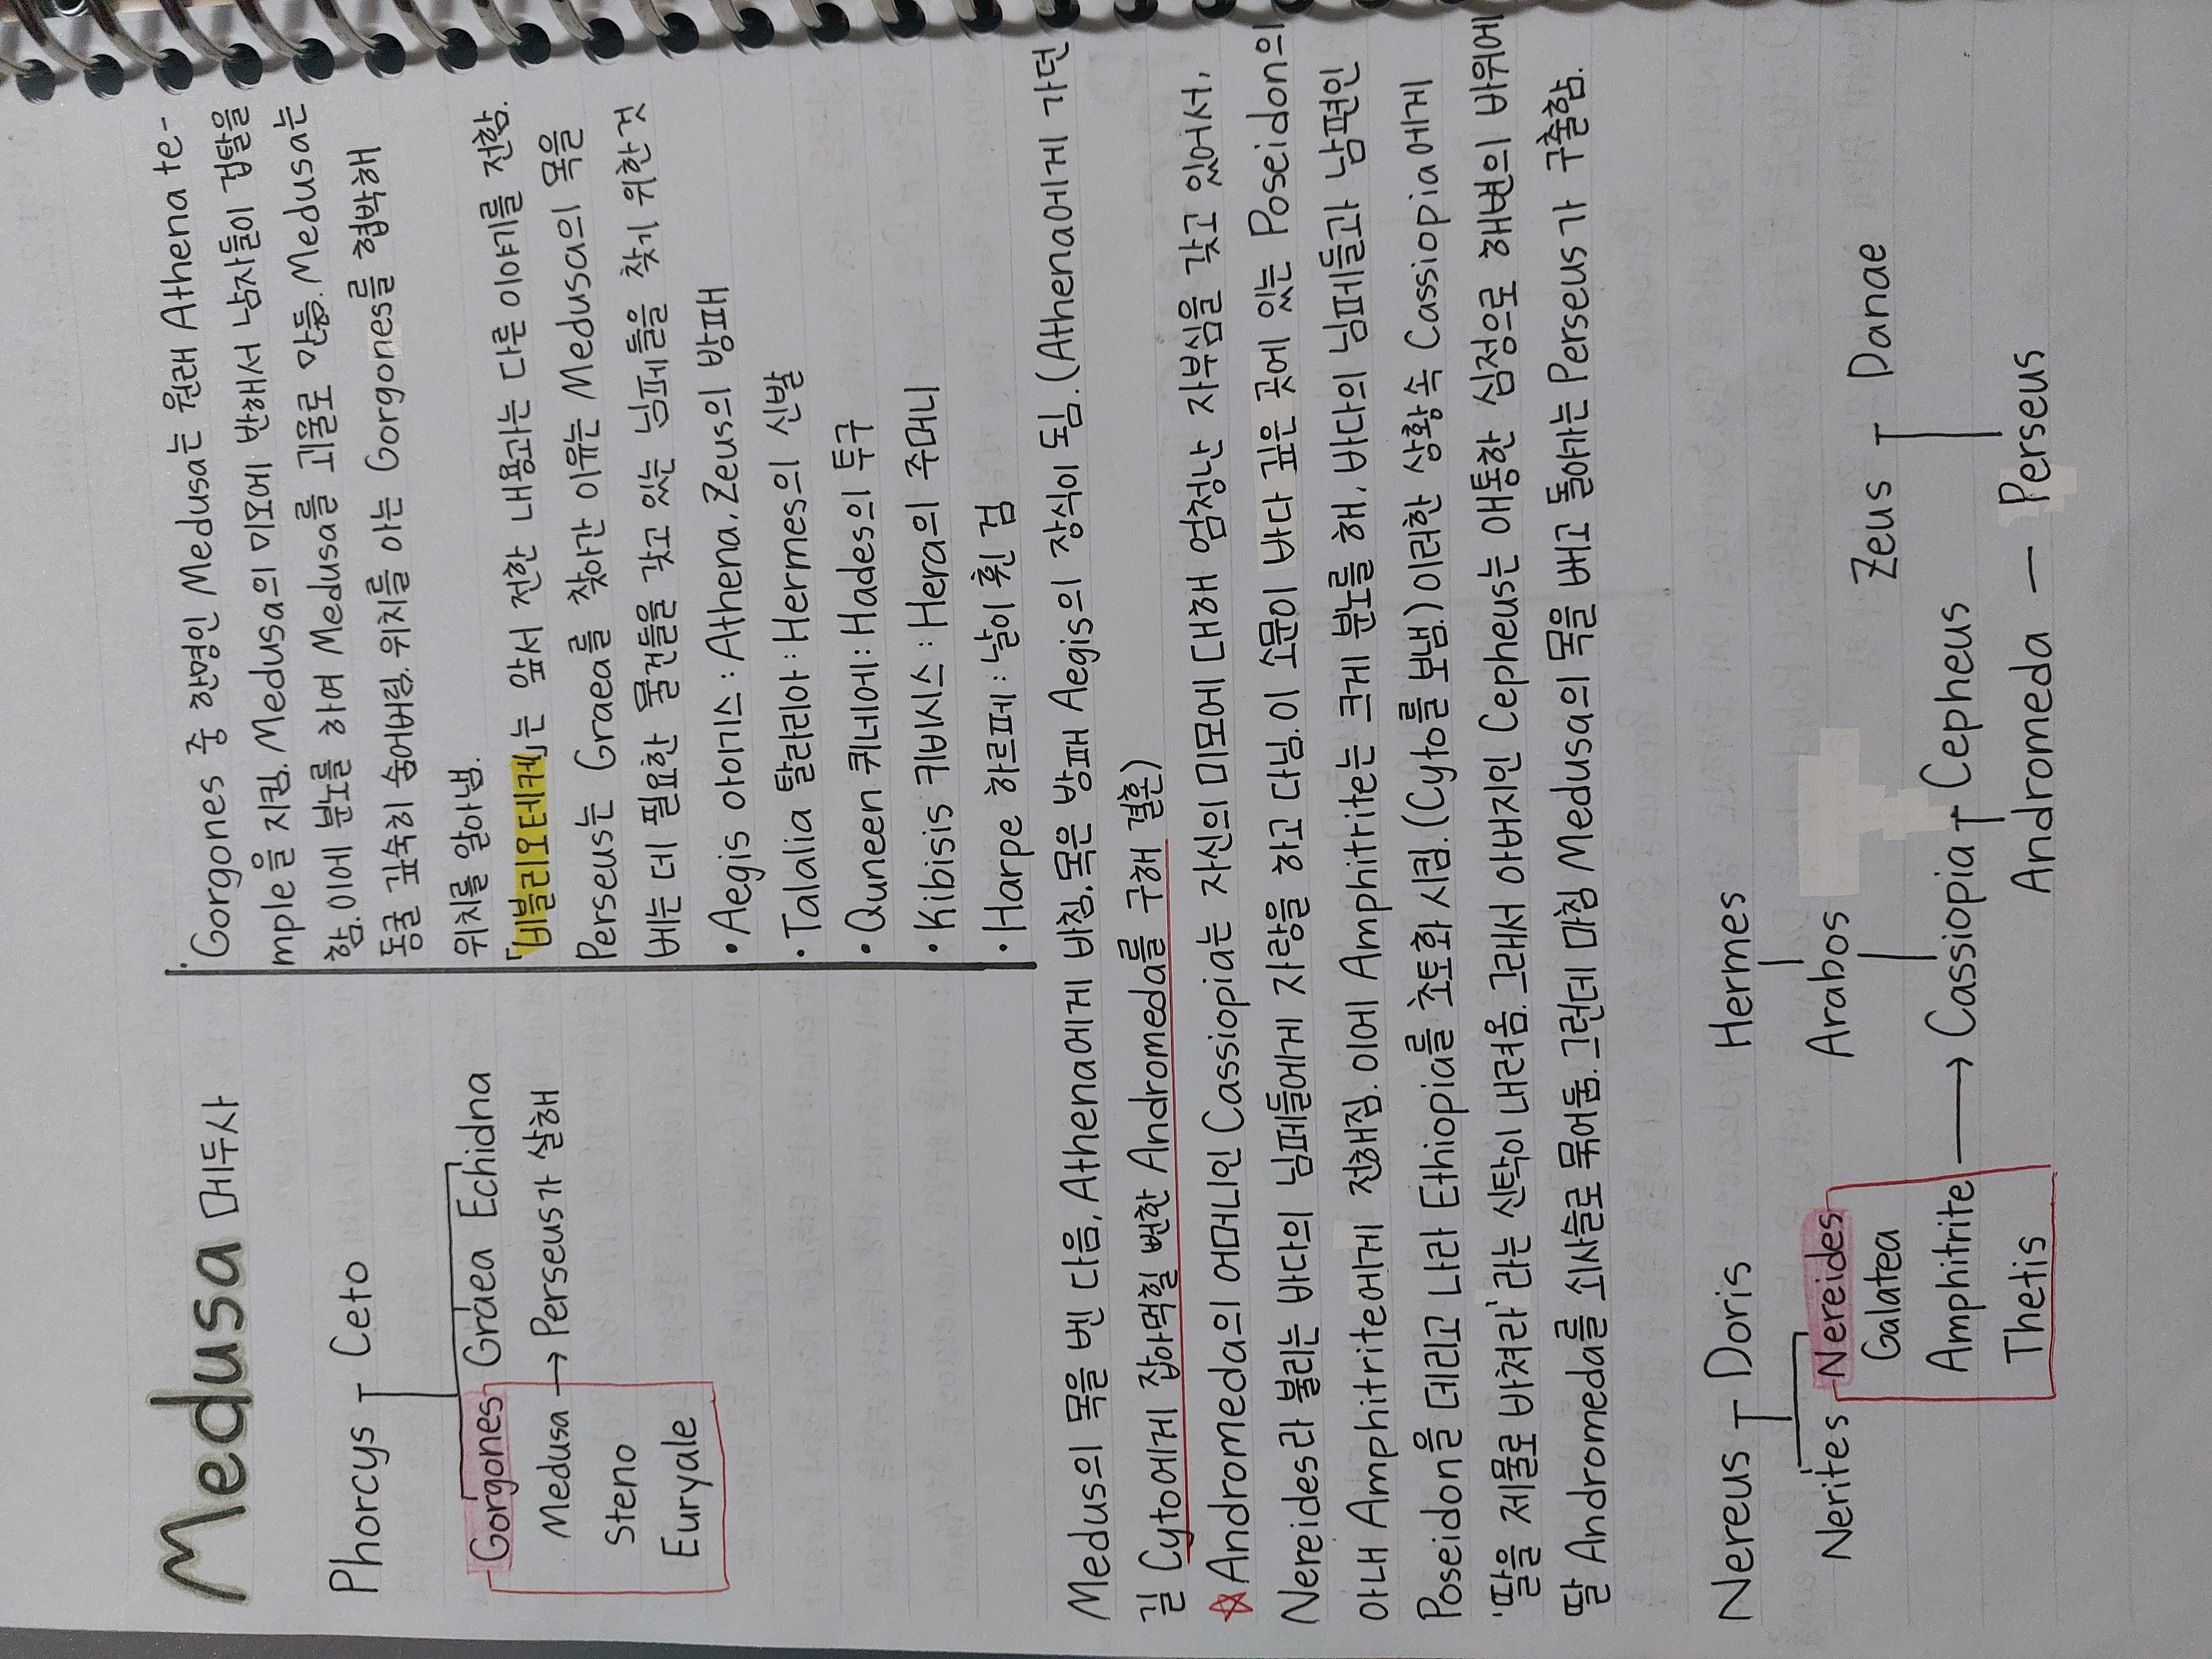 Medusa 메두사
Phorcys Ceto
Gorgones Graea Echidna
Medusa → Perseus가 살해
Steno
Euryale
·Gorgones 중 한명인 Medusa는 원래 Athena te-
mple을 지킴. Medusa의 미모에 반해서 남자들이 겁탈을
함. 이에 분노를 하여 Medusa를 괴물로 만듦. Medusa는
동굴 깊숙히 숨어버림. 위치를 아는 Gorgones를 협박해
위치를 알아냄.
「비블리오테케」는 앞서 전한 내용과는 다른 이야기를 전함.
Perseus는 Graea를 찾아간 이유는 Medusa의 목을
베는 데 필요한 물건들을 갖고 있는 님페들을 찾기 위한 것
• Aegis 아이기스 : Athena, Zeus의 방패
• Talalia 탈라리아 : Hermes의 신발
• Quneen 퀴네에 : Hades의 투구
• Kibisis 키비시스 : Hera의 주머니
• Harpe 하르페 : 날이 휜 검
Medus의 목을 벤 다음, Athena에게 바침. 목은 방패 Aegis의 장식이 됨. (Athena에게 가던
길 Cyto에게 잡아먹힐 뻔한 Andromeda를 구해 결혼)
☆ Andromeda의 어머니인 Cassiopia는 자신의 미모에 대해 엄청난 자부심을 갖고 있어서,
Nereides라 불리는 바다의 님페들에게 자랑을 하고 다님. 이 소문이 바다 깊은 곳에 있는 Poseidon의
아내 Amphitrite에게 전해짐. 이에 Amphitrite는 크게 분노를 해, 바다의 님페들과 남편인
Poseidon을 데리고 나라 Ethiopia를 초토화 시킴. (Cyto를 보냄.) 이러한 상황 속 Cassiopia에게
'딸을 제물로 바쳐라' 라는 신탁이 내려옴. 그래서 아버지인 Cepheus는 애통한 심정으로 해변의 바위에
딸 Andromeda를 쇠사슬로 묶어둠. 그런데 마침 Medusa의 목을 베고 돌아가는 Perseus가 구출함.
Nereus Doris
Nerites Nereides
Galatea
Amphitrite → Cassiopia Cepheus
Thetis
Hermes
Arabos
Zeus Danae
Andromeda — Perseus